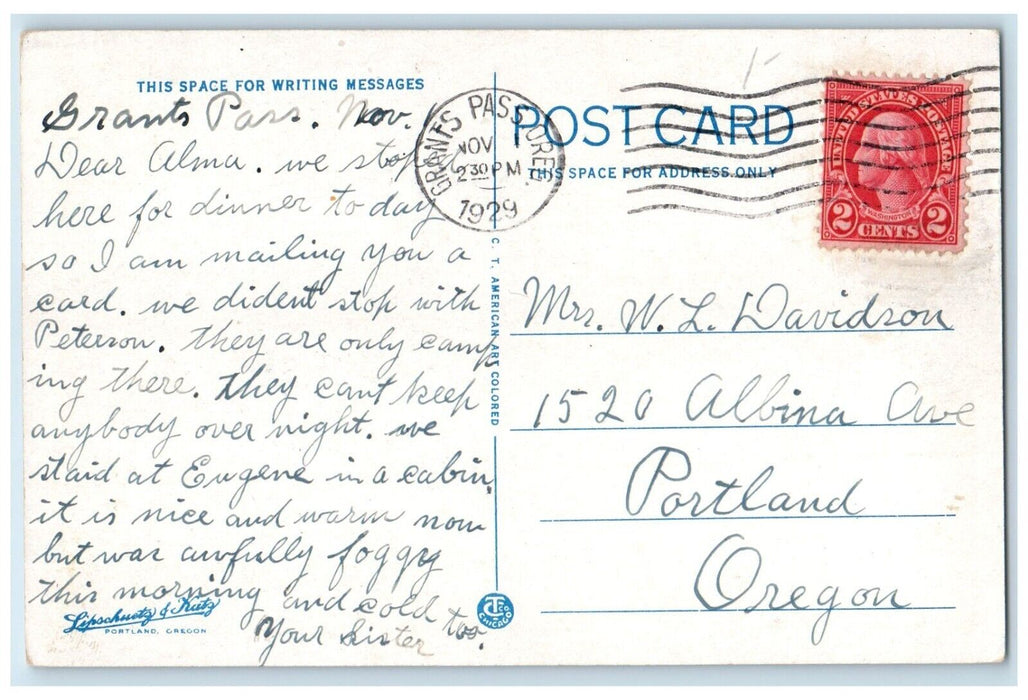 THIS SPACE FOR WRITING MESSAGES
Grants Pass. Nov.
Dear Alma. we stoped
here for dinner to day
so I am mailing you a
card. we dident stop with
Peterson. they are only camp
ing there. they cant keep
anybody over night. we
staid at Eugene in a cabin.
it is nice and warm now
but was awfully foggy
this morning and cold too.
Your Sister
Lipschuetz & Katz
PORTLAND, OREGON
C. T. AMERICAN ART COLORED
CT CO
CHICAGO
GRANTS PASS OREG
NOV
2 30 PM
1929
POST CARD
THIS SPACE FOR ADDRESS ONLY
UNITED STATES POSTAGE
WASHINGTON
2 CENTS 2
Mrs. W. L. Davidson
1520 Albina Ave
Portland
Oregon